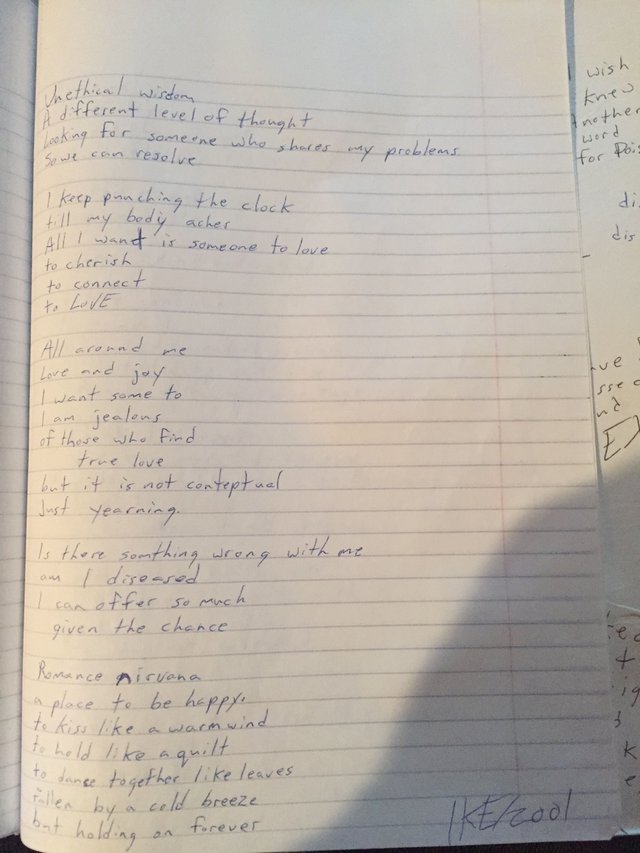 Unethical wisdom
A different level of thought
Looking for someone who shares my problems
So we can resolve
I keep punching the clock
till my body aches
All I want is someone to love
to cherish
to connect
to LOVE
All around me
Love and joy
I want some to
I am jealous
of those who find
true love
but it is not conteptual
Just yearning.
Is there somthing wrong with me
am I diseased
I can offer so much
given the chance
Romance nirvana
a place to be happy.
to kiss like a warm wind
to hold like a quilt
to dance together like leaves
fallen by a cold breeze
but holding on forever
IKE/2001
wish
knew
nother
word
for
di
dis